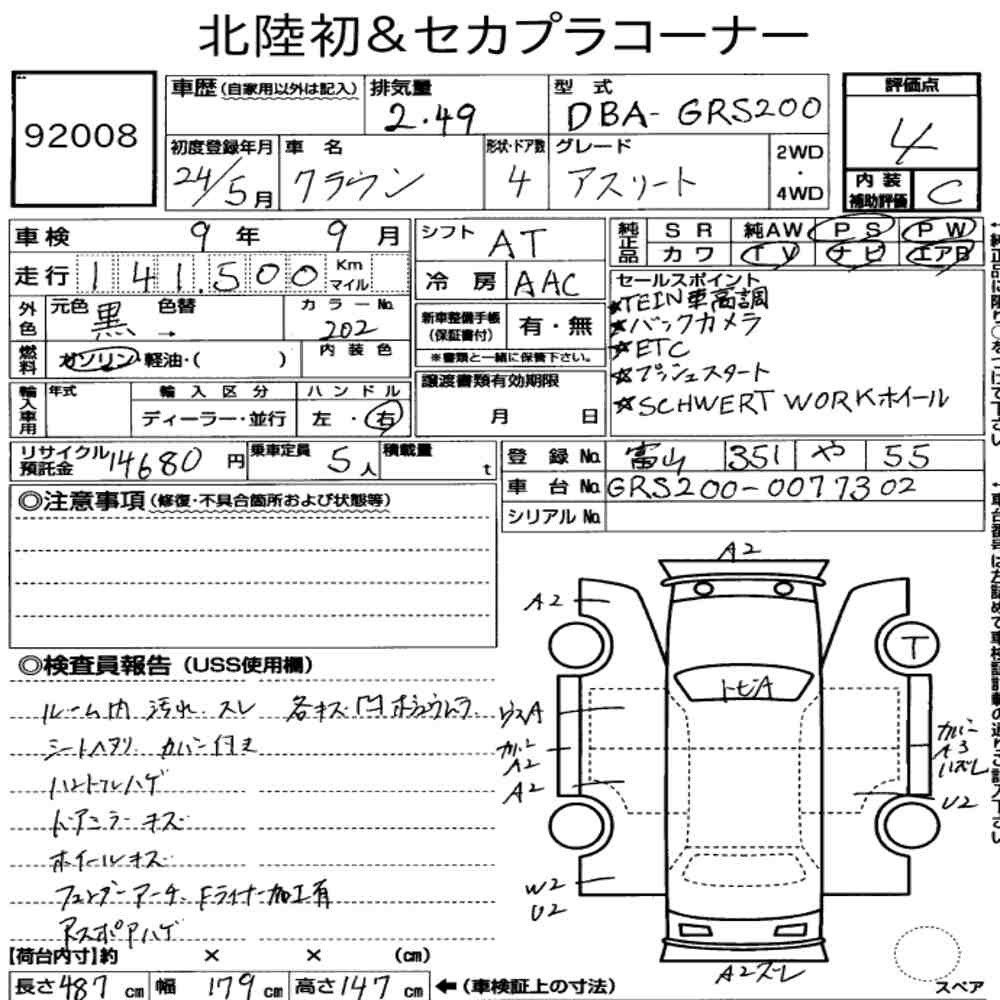 北陸初&セカプラコーナー
92008
車歴 (自家用以外は記入)
排気量 2.49
型式 DBA-GRS200
評価点 4
初度登録年月 24/5月
車名 クラウン
形状・ドア数 4
グレード アスリート
2WD・4WD
内装補助評価 C
車検 9年 9月
走行 141,500 Km マイル
外色 元色 黒 → 色替
カラーNo. 202
燃料 ガソリン・軽油・( )
内装色
輸入車用 年式
輸入区分 ディーラー・並行
ハンドル 左・右
シフト AT
冷房 AAC
新車整備手帳(保証書付) 有・無
※書類と一緒に保管下さい。
譲渡書類有効期限
月 日
純正品 SR 純AW PS PW
カワ TV ナビ エアB
セールスポイント
★TEIN車高調
★バックカメラ
★ETC
★プッシュスタート
★SCHWERT WORKホイール
リサイクル預託金 14680円
乗車定員 5人
積載量 t
登録No. 富山 351 や 55
車台No. GRS200-0077302
シリアルNo.
◎注意事項 (修復・不具合箇所および状態等)
◎検査員報告 (USS使用欄)
ルーム内 汚れ、スレ 各キズ 凹
シートヘタリ
ハンドルハゲ
ドアミラーキズ
ホイールキズ
フェンダーアーチ、Fライナー加工有
A2
A2
T
トビA
A2
A2
A3
U2
W2
U2
A2ズレ
スペア
【荷台内寸】約 × × (cm)
長さ 487cm 幅 179cm 高さ 147cm ←(車検証上の寸法)